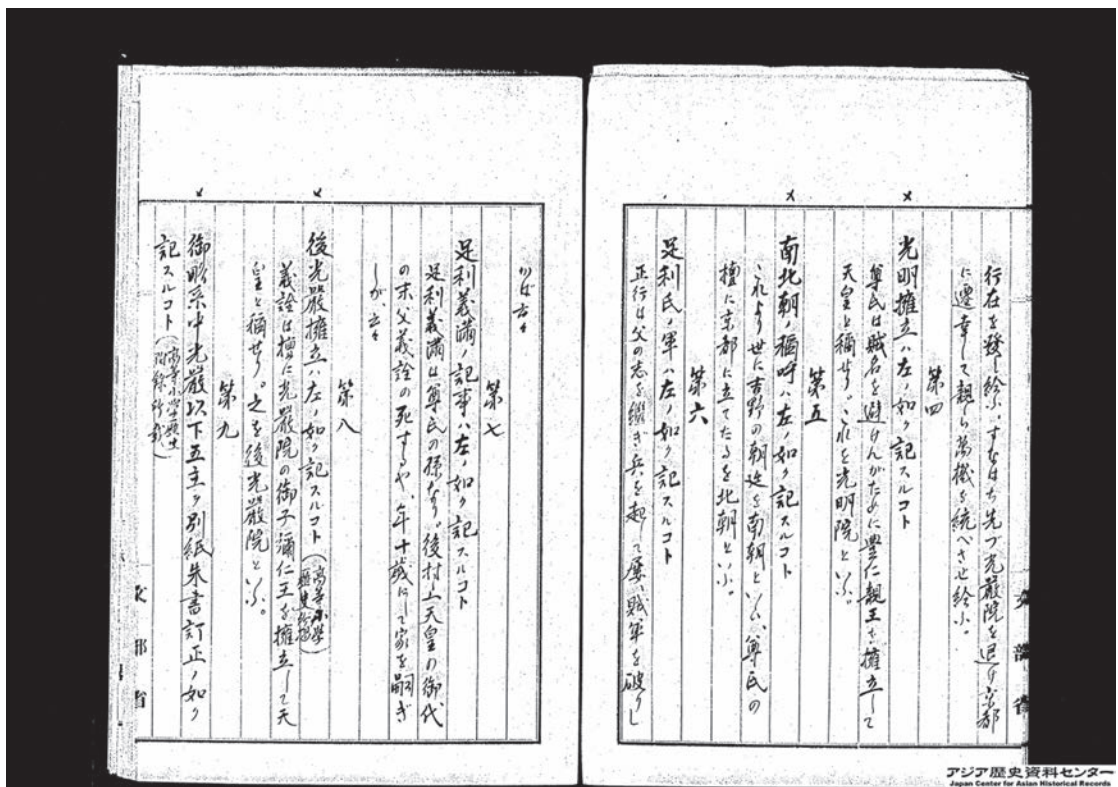 行在を発し給ふ、すなはち先づ光厳院を退け京都
に遷幸して親ら萬機を統べさせ給ふ。
第四
光明擁立ハ左ノ如ク記スルコト
尊氏は賊名を避けんがために豊仁親王を擁立して
天皇と稱せり。これを光明院といふ。
第五
南北朝ノ稱呼ハ左ノ如ク記スルコト
これより世に吉野の朝廷を南朝といひ、尊氏の
擅に京都に立てたるを北朝といふ。
第六
足利氏ノ軍ハ左ノ如ク記スルコト
正行は父の志を繼ぎ兵を起して屡、賊軍を破りし
文部省
かば云々
第七
足利義滿ノ記事ハ左ノ如ク記スルコト
足利義滿は尊氏の孫なり。後村上天皇の御代
の末父義詮の死するや、年十歳にして家を嗣ぎ
しが、云々
第八
後光嚴擁立ハ左ノ如ク記スルコト(高等小學
義詮は擅に光嚴院の御子彌仁王を擁立して天
皇と稱せり。之を後光嚴院といふ。
第九
御略系中光嚴以下五主ヲ別紙朱書訂正ノ如ク
記スルコト
文部省
アジア歴史資料センター
Japan Center for Asian Historical Records